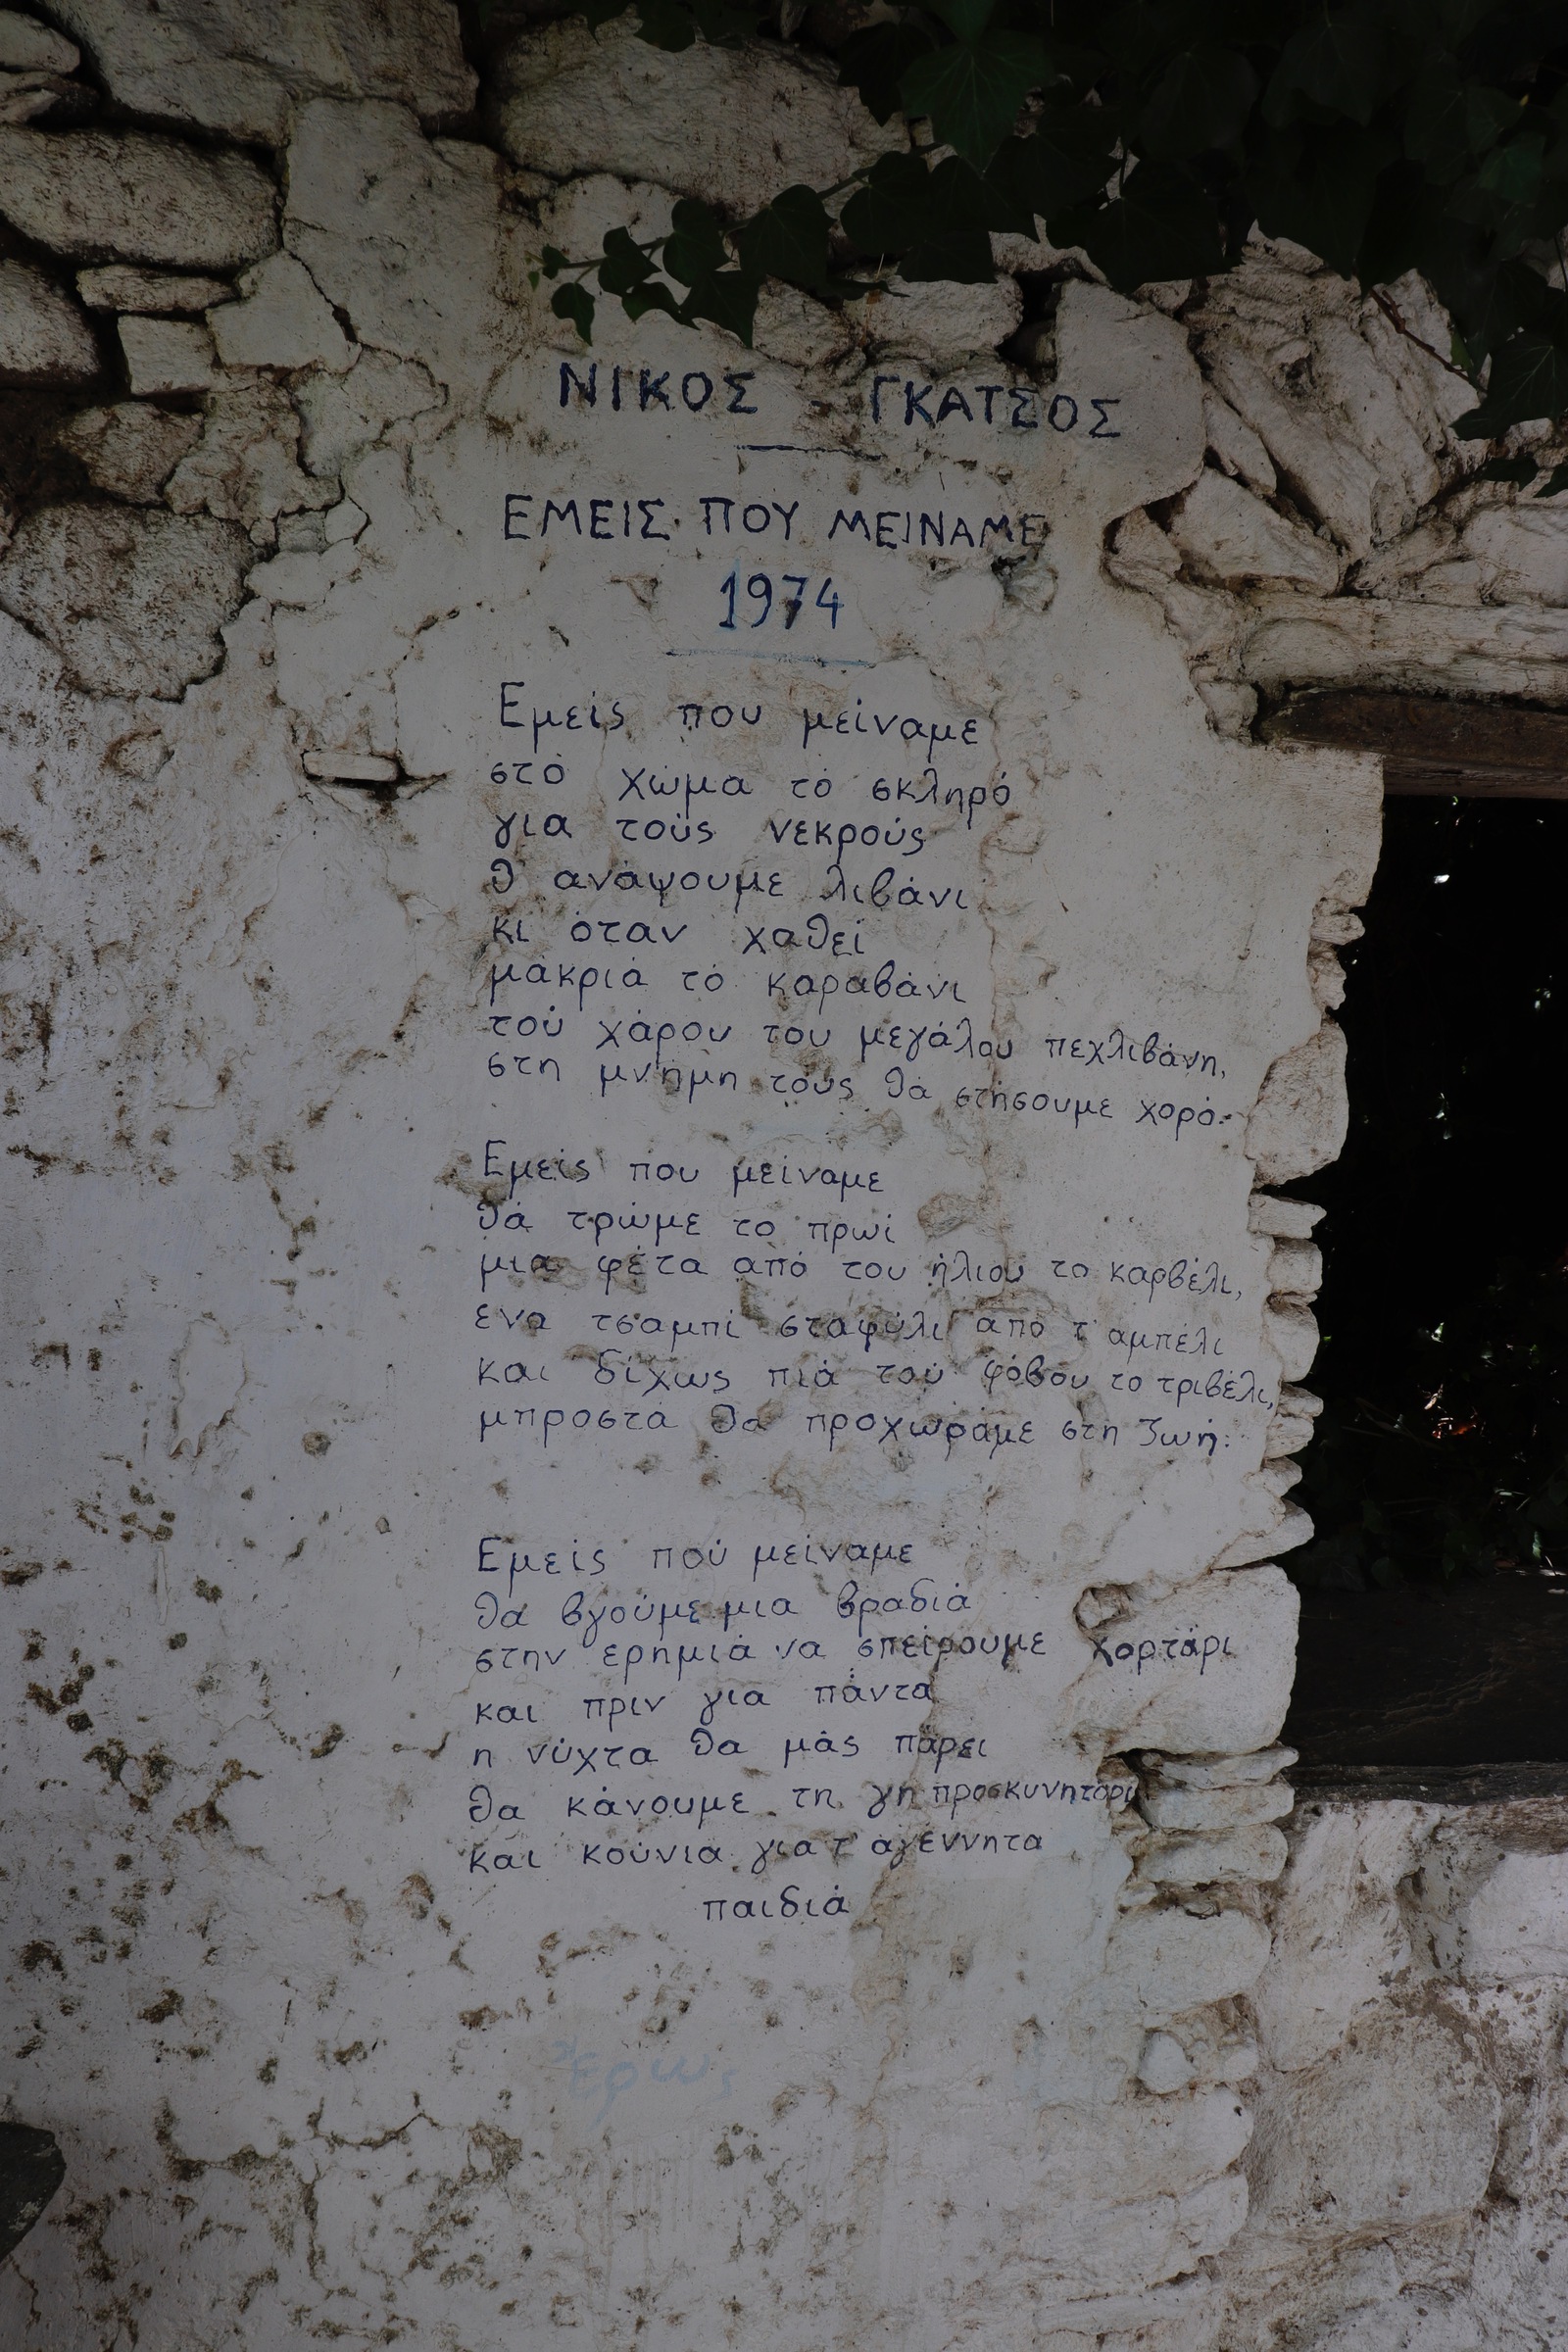 ΝΙΚΟΣ ΓΚΑΤΣΟΣ
ΕΜΕΙΣ ΠΟΥ ΜΕΙΝΑΜΕ
1974
Εμείς που μείναμε
στό χώμα τό σκληρό
για τούς νεκρούς
θ' ανάψουμε λιβάνι
κι όταν χαθεί
μακριά τό καραβάνι
τού χάρου του μεγάλου πεχλιβάνη,
στη μνήμη τούς θά στήσουμε χορό.
Εμείς που μείναμε
θά τρώμε το πρωί
μια φέτα από του ήλιου το καρβέλι,
ένα τσαμπί σταφύλι από τ' αμπέλι
και δίχως πιά τού φόβου το τριβέλι,
μπροστά θα προχωράμε στη ζωή.
Εμείς πού μείναμε
θα βγούμε μια βραδιά
στην ερημιά να σπείρουμε χορτάρι
και πριν για πάντα
η νύχτα θα μάς πάρει
θα κάνουμε τη γη προσκυνητάρι
και κούνια για τ' αγέννητα
παιδιά
Έρως